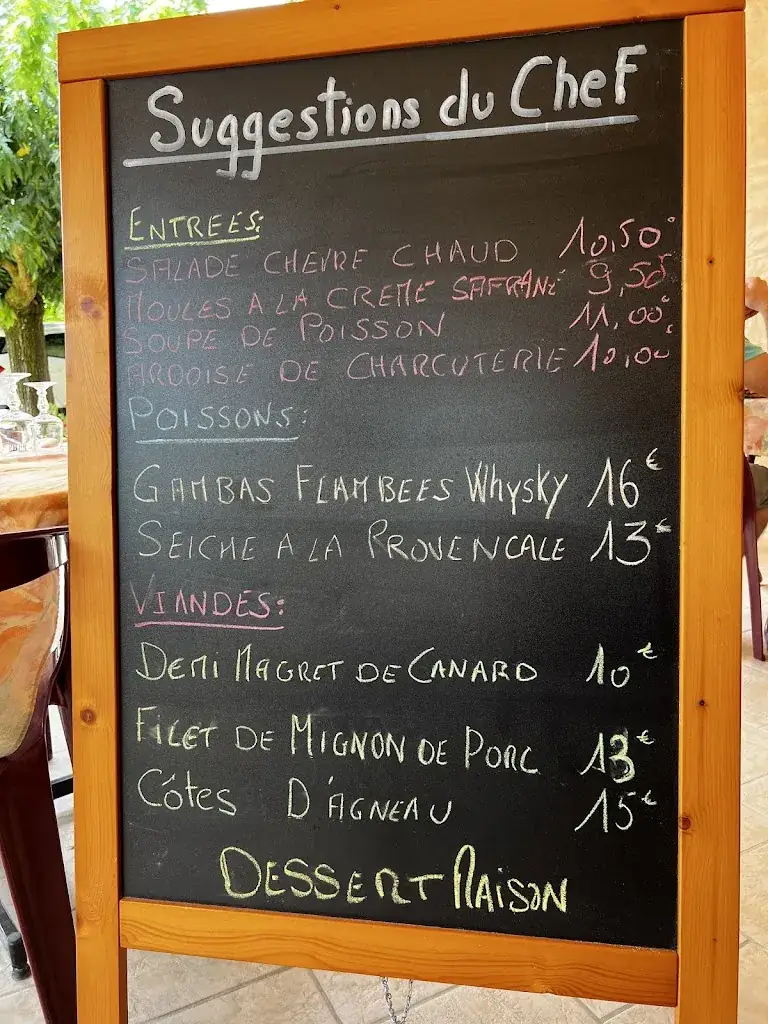 Suggestions du Chef
ENTREES:
SALADE CHEVRE CHAUD 10,50€
MOULES A LA CREME SAFRANÉ 9,50€
SOUPE DE POISSON 11,00€
ARDOISE DE CHARCUTERIE 10,00
POISSONS:
GAMBAS FLAMBEES Whysky 16€
SEICHE A LA PROVENCALE 13€
VIANDES:
DEMI MAGRET DE CANARD 10€
FILET DE MIGNON DE PORC 13€
CôTes D'AGNEAU 15€
DESSERT MAISON